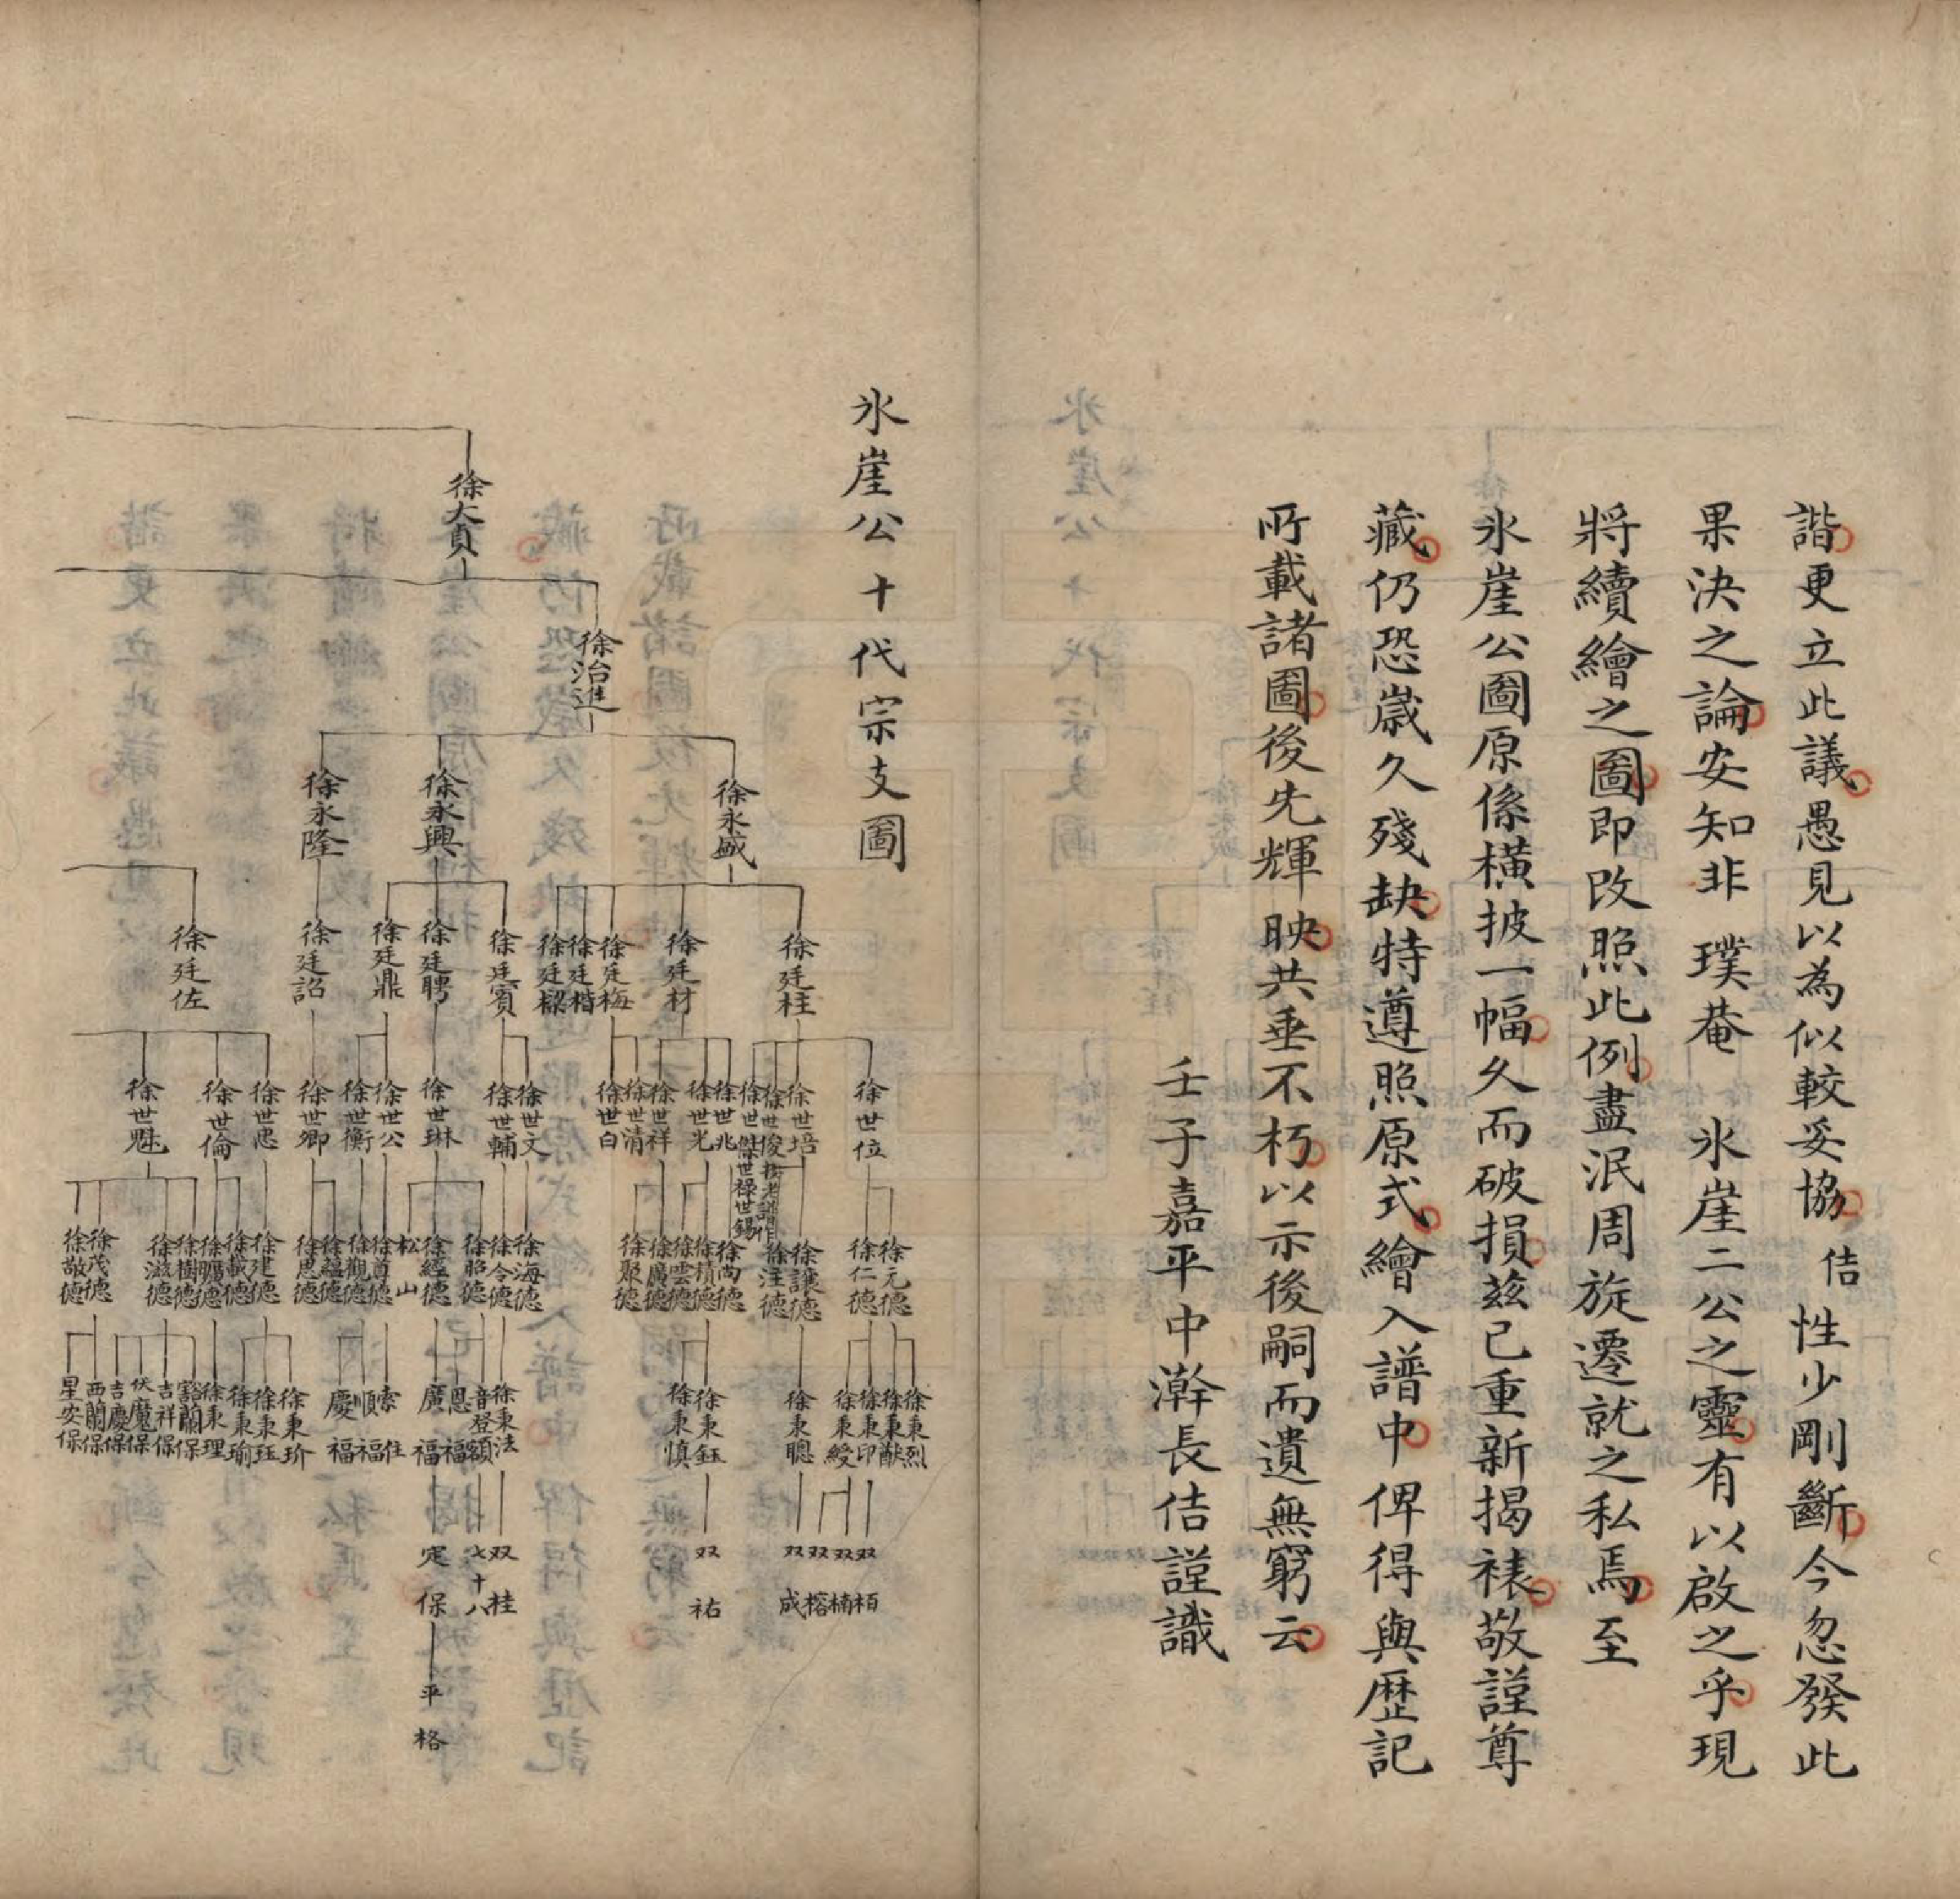 諧更立此議愚見以為似較妥協佶性少剛斷今忽發此
果決之論安知非 璞菴 氷崖二公之靈有以啟之乎現
將續繪之圖即改照此例盡泯周旋遷就之私焉至
氷崖公圖原係橫披一幅久而破損茲已重新揭裱敬謹尊
藏仍恐歲久殘缺特遵照原式繪入譜中俾得與歷記
所載諸圖後先輝映共垂不朽以示後嗣而遺無窮云
壬子嘉平中澣長佶謹識
氷崖公十代宗支圖
徐大貞
徐治進
徐永盛
徐永興
徐永隆
徐廷柱
徐廷材
徐廷梅
徐廷楷
徐廷樑
徐廷賓
徐廷聘
徐廷鼎
徐廷詔
徐廷佐
徐世位
徐世培
徐世俊按老譜作
徐世傑世祿世錫
徐世兆
徐世光
徐世祥
徐世清
徐世白
徐世文
徐世輔
徐世琳
徐世公
徐世衡
徐世卿
徐世忠
徐世倫
徐世魁
徐元德
徐仁德
徐讓德
徐注德
徐尚德
徐積德
徐雲德
徐廣德
徐聚德
徐海德
徐令德
徐昭德
徐經德
松山
徐尊德
徐觀德
徐蘊德
徐思德
徐建德
徐載德
徐曠德
徐樹德
徐滋德
徐茂德
徐敬德
徐秉烈
徐秉猷
徐秉印
徐秉綬
徐秉聰
徐秉鈺
徐秉慎
徐秉法
音登額
恩福
廣福
索住
順福
慶福
徐秉玠
徐秉珏
徐秉瑜
徐秉理
豁蘭保
吉祥保
伏魔保
吉慶保
西蘭保
星安保
双栢
双楠
双榕
双成
双祐
双桂
七十八
定保
平格